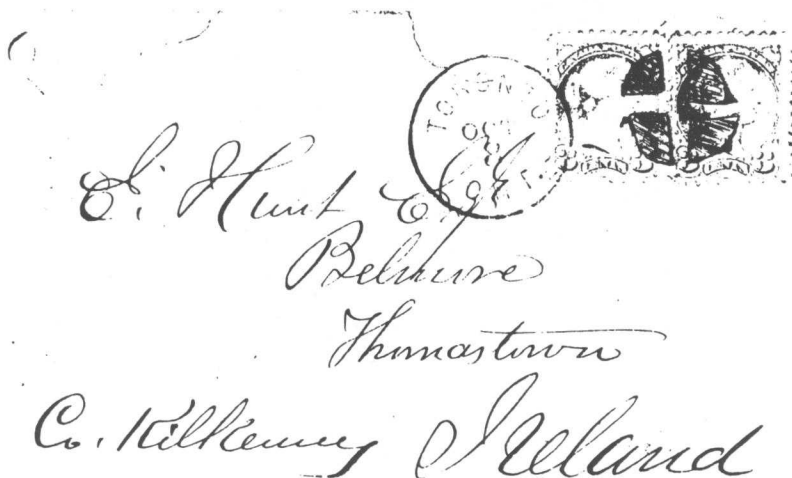 TORONTO
ONT.
3 CENTS 3 3 CENTS 3
E. Hunt Esq
Belmore
Thomastown
Co. Kilkenny Ireland